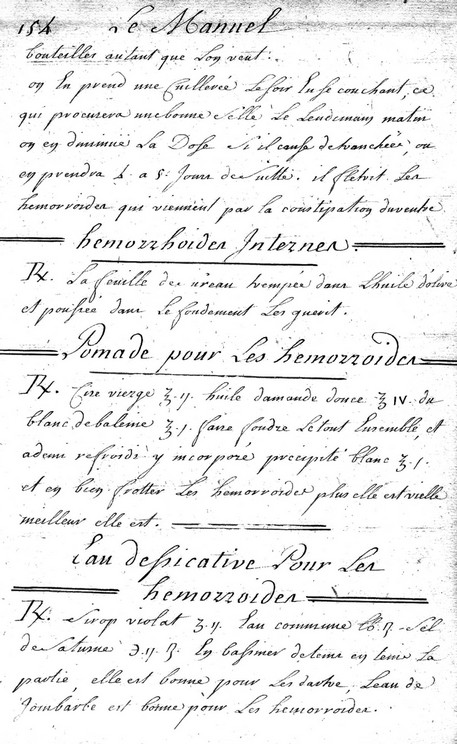 154 Le Manuel
bouteilles au'tant que Lon veut.
on En prend une Cuillerée Le soir En se couchant, ca
qui procurera une bonne Selle Le Lendemain matin
on en diminue La Dose Si il cause de tranchéé, ou
en prendra 4 a 5 Jours de Suitte. il fletrit Les
hemorroides qui viennent par la constipation du ventre
hemorrhoides Internes.
℞. La feuille de tempée dans Lhuile dolive
et pousséé dans Le fondement Les guerit.
Pomade pour Les hemorroides
℞. Cire vierge ʒ. ij. huile damande douce ʒ IV. du
blanc de baleine ʒ. j. faire foudre Le tout Ensemble, et
ademi refroidi y incorporé precipité blanc ʒ. j.
et en bien frotter Les hemorroides plus elle est vielle
meilleur elle est.
Eau dessicative Pour Les
hemorroides
℞. Sirop violat ʒ. ij. Eau commune ℔. ß. Sel
de Saturne ij. ß. En bassiner de tems en tems La
partié, elle est bonne pour Les dartre, Leau de
Jombarbe est bonne pour Les hemorroides.